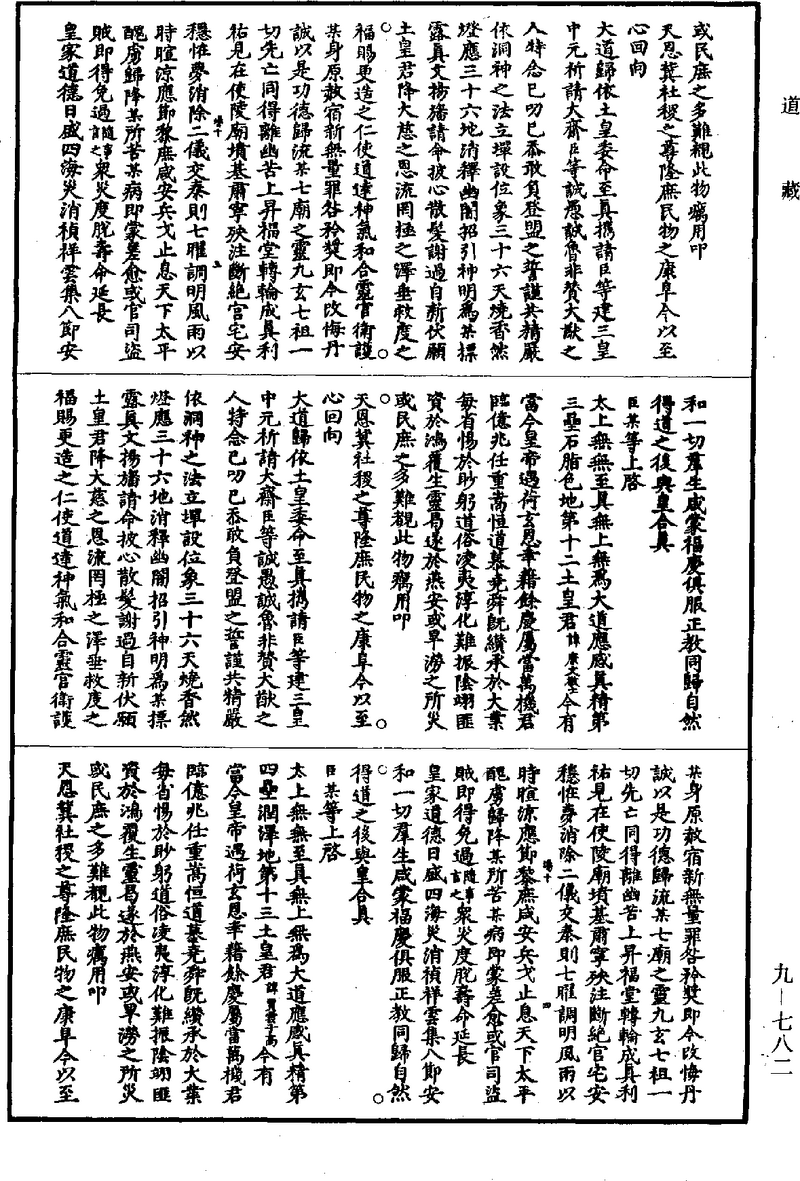 道藏
或民庶之多難覩此物癘用叩
天恩冀社稷之尊隆庶民物之康阜今以至
心回向
大道歸依土皇委命至真携請臣等建三皇
中元祈請大齋臣等誠愚誠魯非贊大猷之
人特念已叨已忝敢負登盟之誓謹共精嚴
依洞神之法立墠設位象三十六天燒香然
燈應三十六地消釋幽闇招引神明為某摽
露真文揚旛請命披心散髮謝過自新伏願
土皇君降大慈之恩流罔極之澤垂救度之
福賜更造之仁使道達神氣和合靈官衛護
某身原赦宿新無量罪咎矜獎即令改悔丹
誠以是功德歸流某七廟之靈九玄七祖一
切先亡同得離幽苦上昇福堂轉輪成真利
祐見在使陵廟墳基肅寧殃注斷絕官宅安
穩恠夢消除二儀交泰則七曜調明風雨以
時暄涼應節黎庶咸安兵戈止息天下太平
醜虜歸降某所苦某病即蒙差愈或官司盜
賊即得免過隨事言之衆災度脫壽命延長
皇家道德日盛四海災消禎祥雲集八節安
和一切羣生咸蒙福慶俱服正教同歸自然
得道之後與皇合真
臣某等上啓
太上無無至真無上無為大道應感真精第
三壘石脂色地第十二土皇君今有
當今皇帝遇荷玄恩幸藉餘慶屬當萬機君
臨億兆任重嵩恒道慕堯舜既纘承於大業
每省惕於眇躬道俗凌夷淳化難振陰翊匪
資於鴻覆生靈曷遂於燕安或旱澇之所災
或民庶之多難覩此物癘用叩
天恩冀社稷之尊隆庶民物之康阜今以至
心回向
大道歸依土皇委命至真携請臣等建三皇
中元祈請大齋臣等誠愚誠魯非贊大猷之
人特念已叨已忝敢負登盟之誓謹共精嚴
依洞神之法立墠設位象三十六天燒香然
燈應三十六地消釋幽闇招引神明為某摽
露真文揚旛請命披心散髮謝過自新伏願
土皇君降大慈之恩流罔極之澤垂救度之
福賜更造之仁使道達神氣和合靈官衛護
某身原赦宿新無量罪咎矜獎即令改悔丹
誠以是功德歸流某七廟之靈九玄七祖一
切先亡同得離幽苦上昇福堂轉輪成真利
祐見在使陵廟墳基肅寧殃注斷絕官宅安
穩恠夢消除二儀交泰則七曜調明風雨以
時暄涼應節黎庶咸安兵戈止息天下太平
醜虜歸降某所苦某病即蒙差愈或官司盜
賊即得免過隨事言之衆災度脫壽命延長
皇家道德日盛四海災消禎祥雲集八節安
和一切羣生咸蒙福慶俱服正教同歸自然
得道之後與皇合真
臣某等上啓
太上無無至真無上無為大道應感真精第
四壘潤澤地第十三土皇君今有
當今皇帝遇荷玄恩幸藉餘慶屬當萬機君
臨億兆任重嵩恒道慕堯舜既纘承於大業
每省惕於眇躬道俗凌夷淳化難振陰翊匪
資於鴻覆生靈曷遂於燕安或旱澇之所災
或民庶之多難覩此物癘用叩
天恩冀社稷之尊隆庶民物之康阜今以至
九—七八二